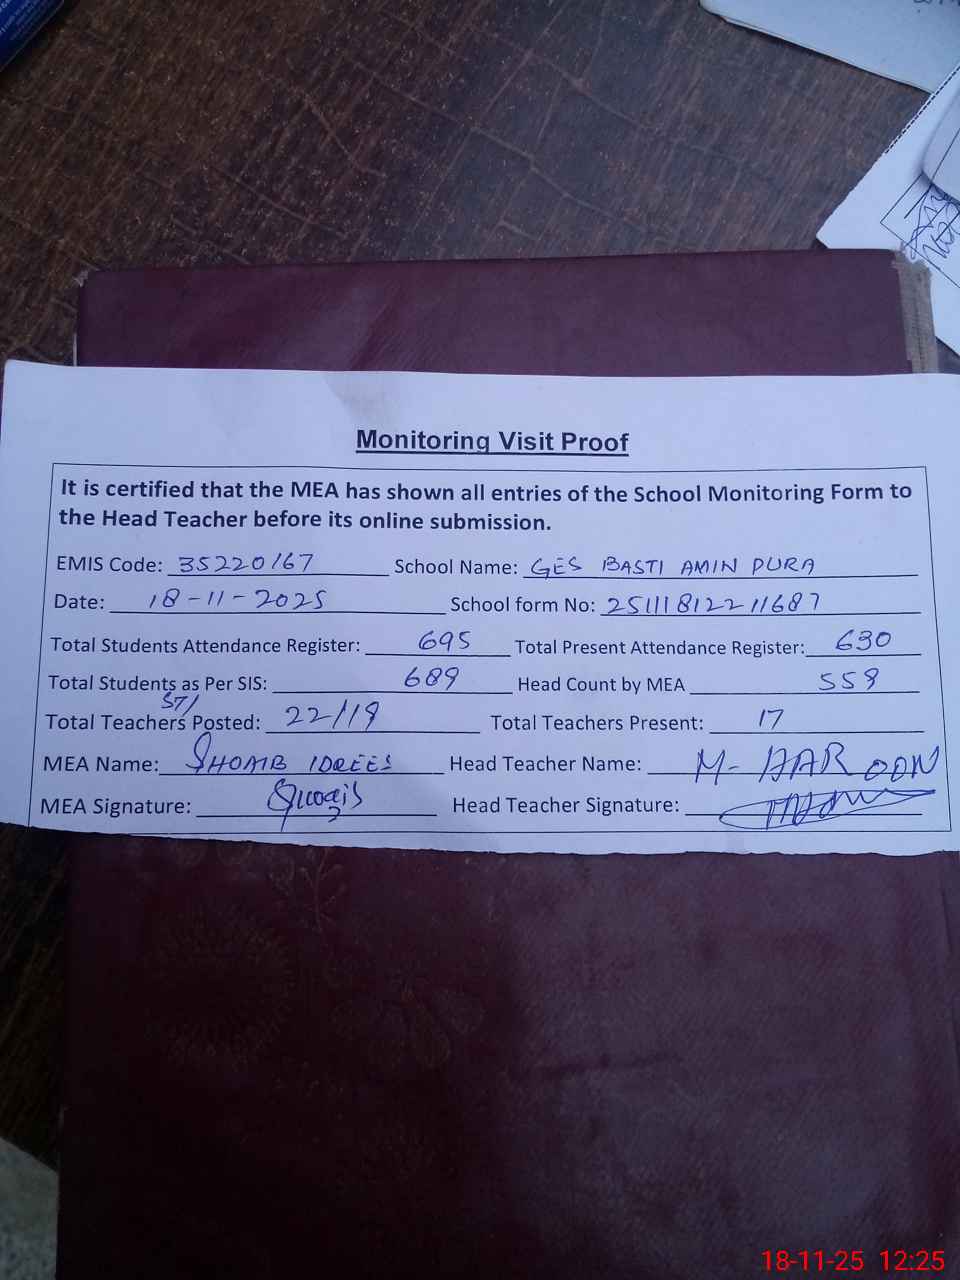 Monitoring Visit Proof
It is certified that the MEA has shown all entries of the School Monitoring Form to
the Head Teacher before its online submission.
EMIS Code: 35220167 School Name: GES BASTI AMIN PURA
Date: 18-11-2025 School form No: 25111812211687
Total Students Attendance Register: 695 Total Present Attendance Register: 630
Total Students as Per SIS: 689 Head Count by MEA 559
ST/
Total Teachers Posted: 22/19 Total Teachers Present: 17
MEA Name: SHOAIB IDREES Head Teacher Name: M- HAROON
MEA Signature: Head Teacher Signature:
18-11-25 12:25